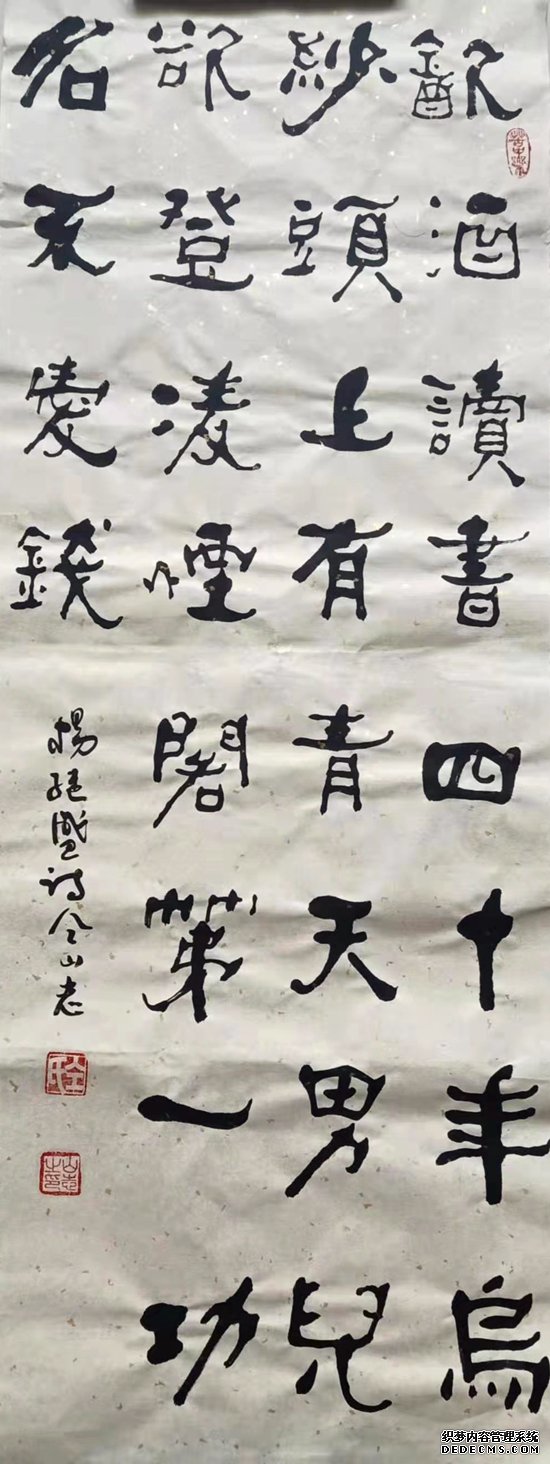 飲酒讀書四十年烏
紗頭上有青天男兒
欲登凌煙閣第一功
名不愛錢
楊繼盛詩山志
山志之印
织梦内容管理系统
DEDECMS.COM